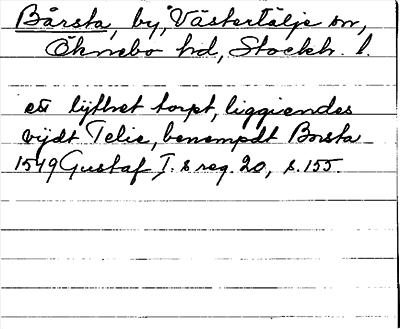 Bårsta, by, Västertälje sn,
Öknebo hd, Stockh. l.
ett lijthet torpt, liggiendes
vijdt Telie, benempdt Borsta
1549 Gustaf I:s reg. 20, s. 155.